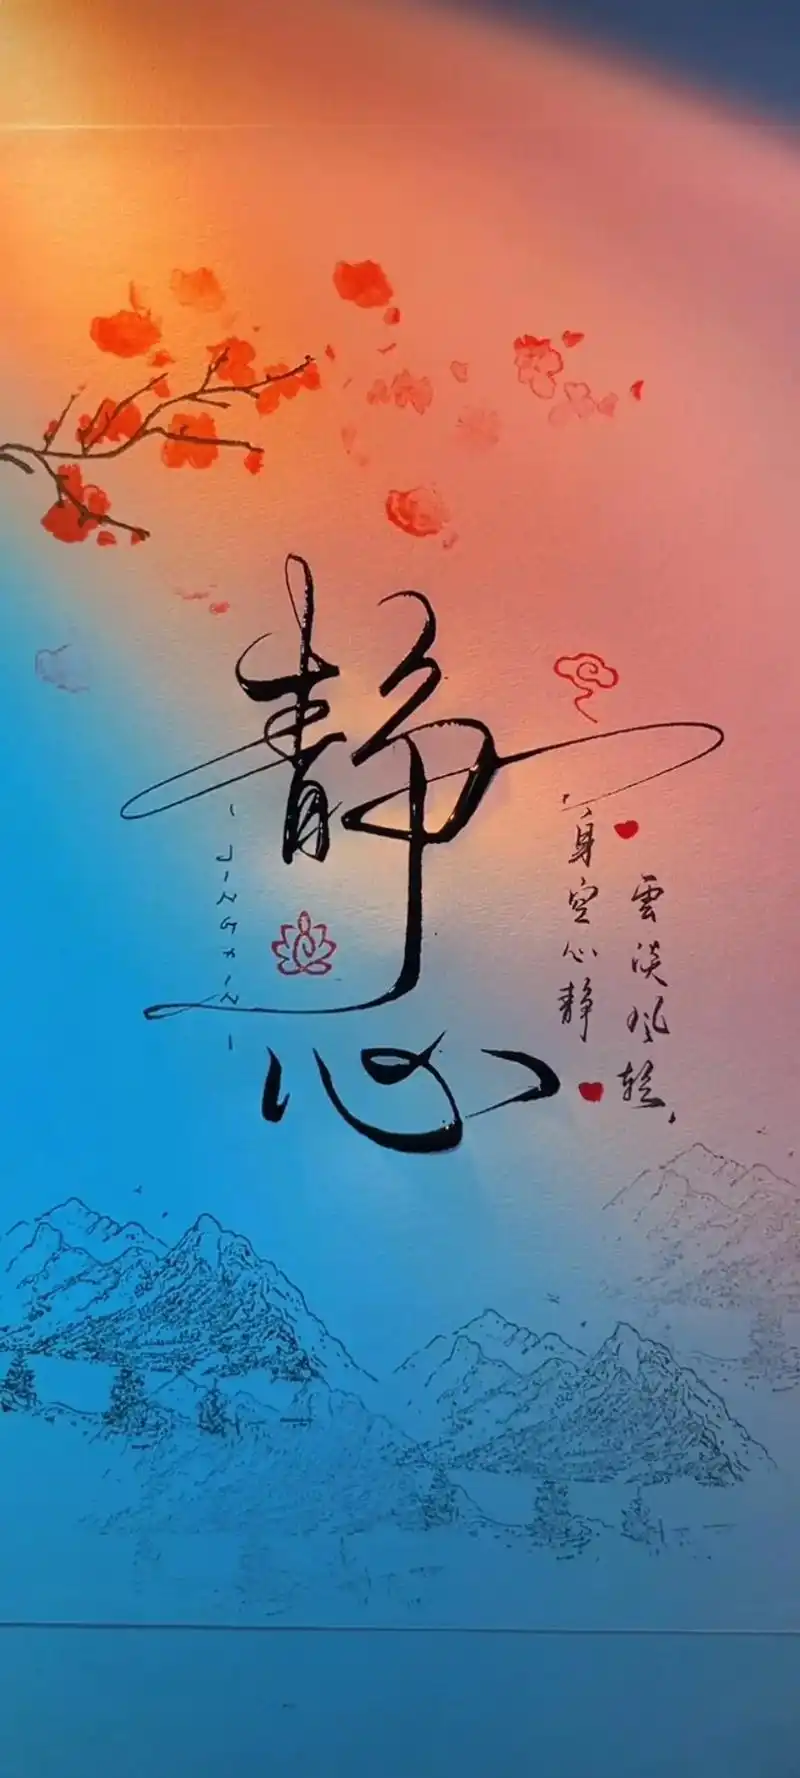 静心
JINGXIN
雲淡风轻
身空心静